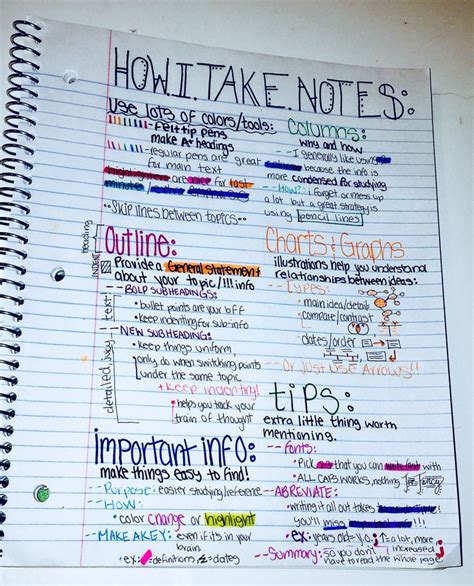 HOW.I.TAKE.NOTES:
use lots of colors/tools:
-felt tip pens
make A+ headings
-regular pens are great
for main text
highlighters are nice for last
minute/
**Skip lines between topics**
Columns:
why and how
--I generally like using
because the info is
more condensed for studying
--HOW?: i forget or mess up
a lot but a great strategy is
using pencil lines
heading
INDENT
Outline:
Provide a General Statement
about your topic/!!! info
--BOLD SUBHEADINGS:
text
• bullet points are your bff
• keep indenting for sub-info
--NEW SUBHEADING:
detailed way
• keep things uniform,
only do when switching points
under the same topic
+ keep indenting!
• helps you track your
train of thought
Charts & Graphs
illustrations help you understand
relationships between ideas:
--TYPES:
• main idea/details
• compare/contrast
• dates/order
--Or Just use Arrows!!
important info:
make things easy to find!
--Purpose: easier studying/reference
--HOW:
• color change or highlight
--MAKE A KEY: even if its in your
brain
• ex: = definitions = dates
tips:
extra little thing worth
mentioning.
--Fonts:
• Pick that you can write fast with
• ALL CAPS WORKS, nothing fancy
--ABREVIATE:
• writing it all out takes
you'll miss
• ex: years old= y.o.; ↑=a lot, more,
increased
--Summary: so you don't
have to read the whole page.